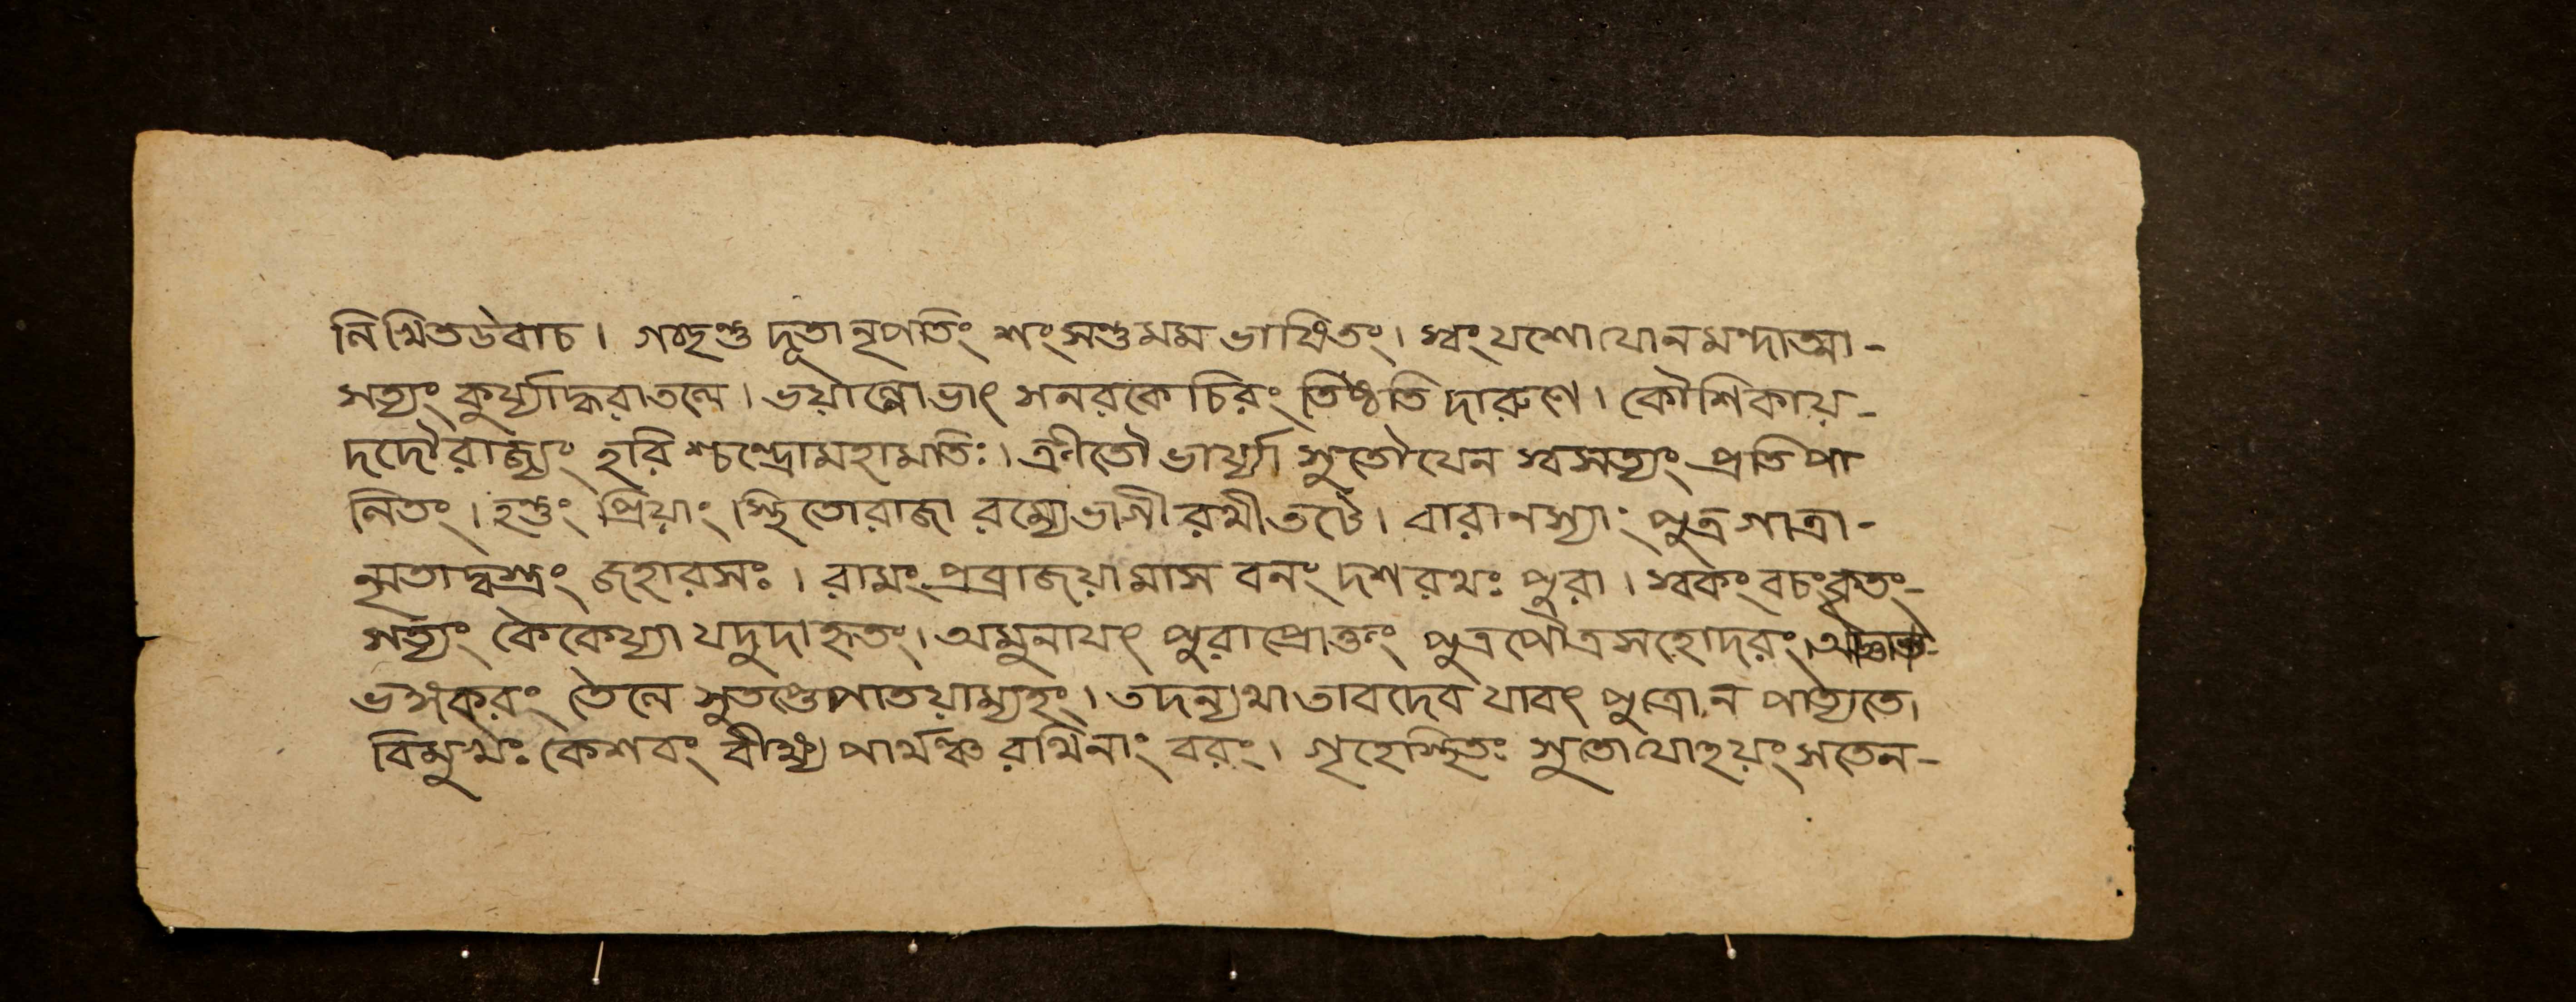 নিখিতউবাচ। গচ্ছন্তু দূতা নৃপতিং শংসন্তু মম ভাষিতং। স্বং যশো যোন মন্দাত্মা-
সত্যং কুর্য্যাদ্ধরাতলে। ভয়াল্লোভাৎ সনরকে চিরং তিষ্ঠতি দারুণে। কৌশিকায়-
দদৌ রাজ্যং হরিশ্চন্দ্রোমহামতিঃ। ক্রীতৌ ভার্য্যা সুতৌ যেন স্বসত্যং প্রতিপা
লিতং। হন্তুং প্রিয়াং স্থিতোরাজা রম্যে ভাগীরথীতটে। বারানস্যাং পুত্রগাত্রা-
ন্মৃতাদ্বস্ত্রং জহারসঃ। রামং প্রব্রাজয়ামাস বনং দশরথঃ পুরা। স্বকং বচঃকৃতং-
সত্যং কৈকেয়্যা যদুদাহৃতং। অমুনাযৎ পুরাপ্রোক্তং পুত্রপৌত্রসহোদরং।
ভঙ্গকরং তৈলে সুতপ্তেপাতয়াম্যহং। তদন্যথা তাবদেব যাবৎ পুত্রোন পাত্যতে।
বিমুখঃ কেশবং বীক্ষ্য পার্থঞ্চ রথিনাং বরং। গৃহেস্থিতঃ সুতোযোহয়ং সতেন-